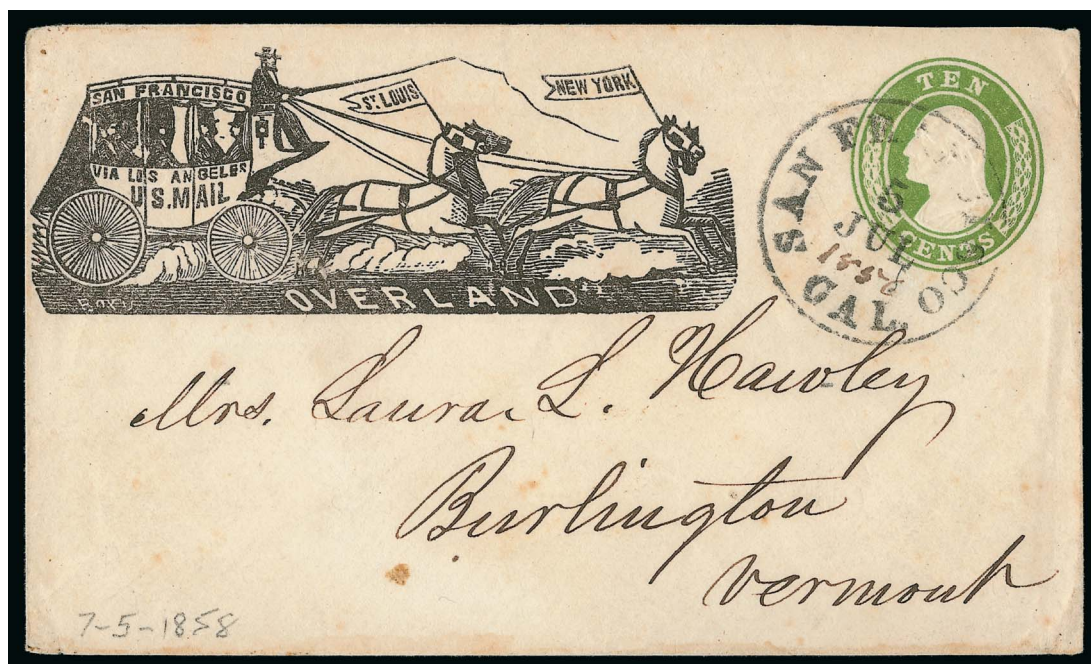 SAN FRANCISCO
VIA LOS ANGELES
U.S. MAIL
ST. LOUIS
NEW YORK
OVERLAND
TEN
CENTS
SAN FRANCISCO
CAL.
5
JUL
1858
Mrs. Laura L. Hawley
Burlington
Vermont
7-5-1858